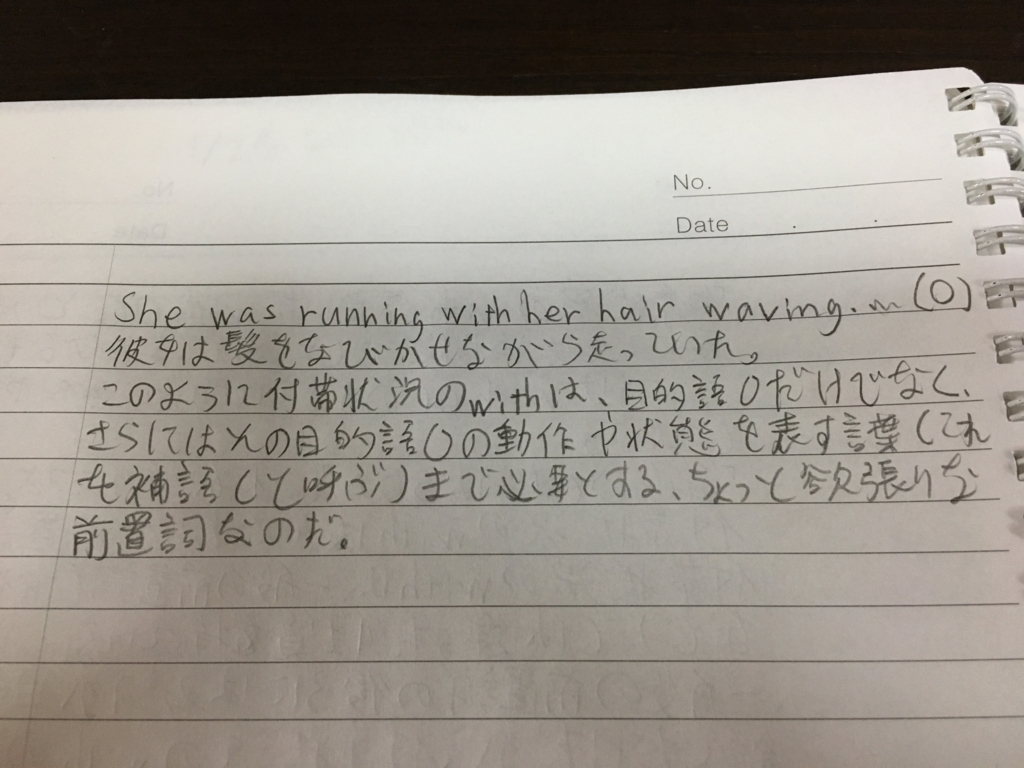 No.
Date
She was running with her hair waving. … (O)
彼女は髪をなびかせながら走っていた。
このように付帯状況のwithは、目的語Oだけでなく、
さらしてはその目的語Oの動作や状態を表す言葉(これ
を補語Cと呼ぶ)まで必要とする、ちょっと欲張りな
前置詞なのだ。